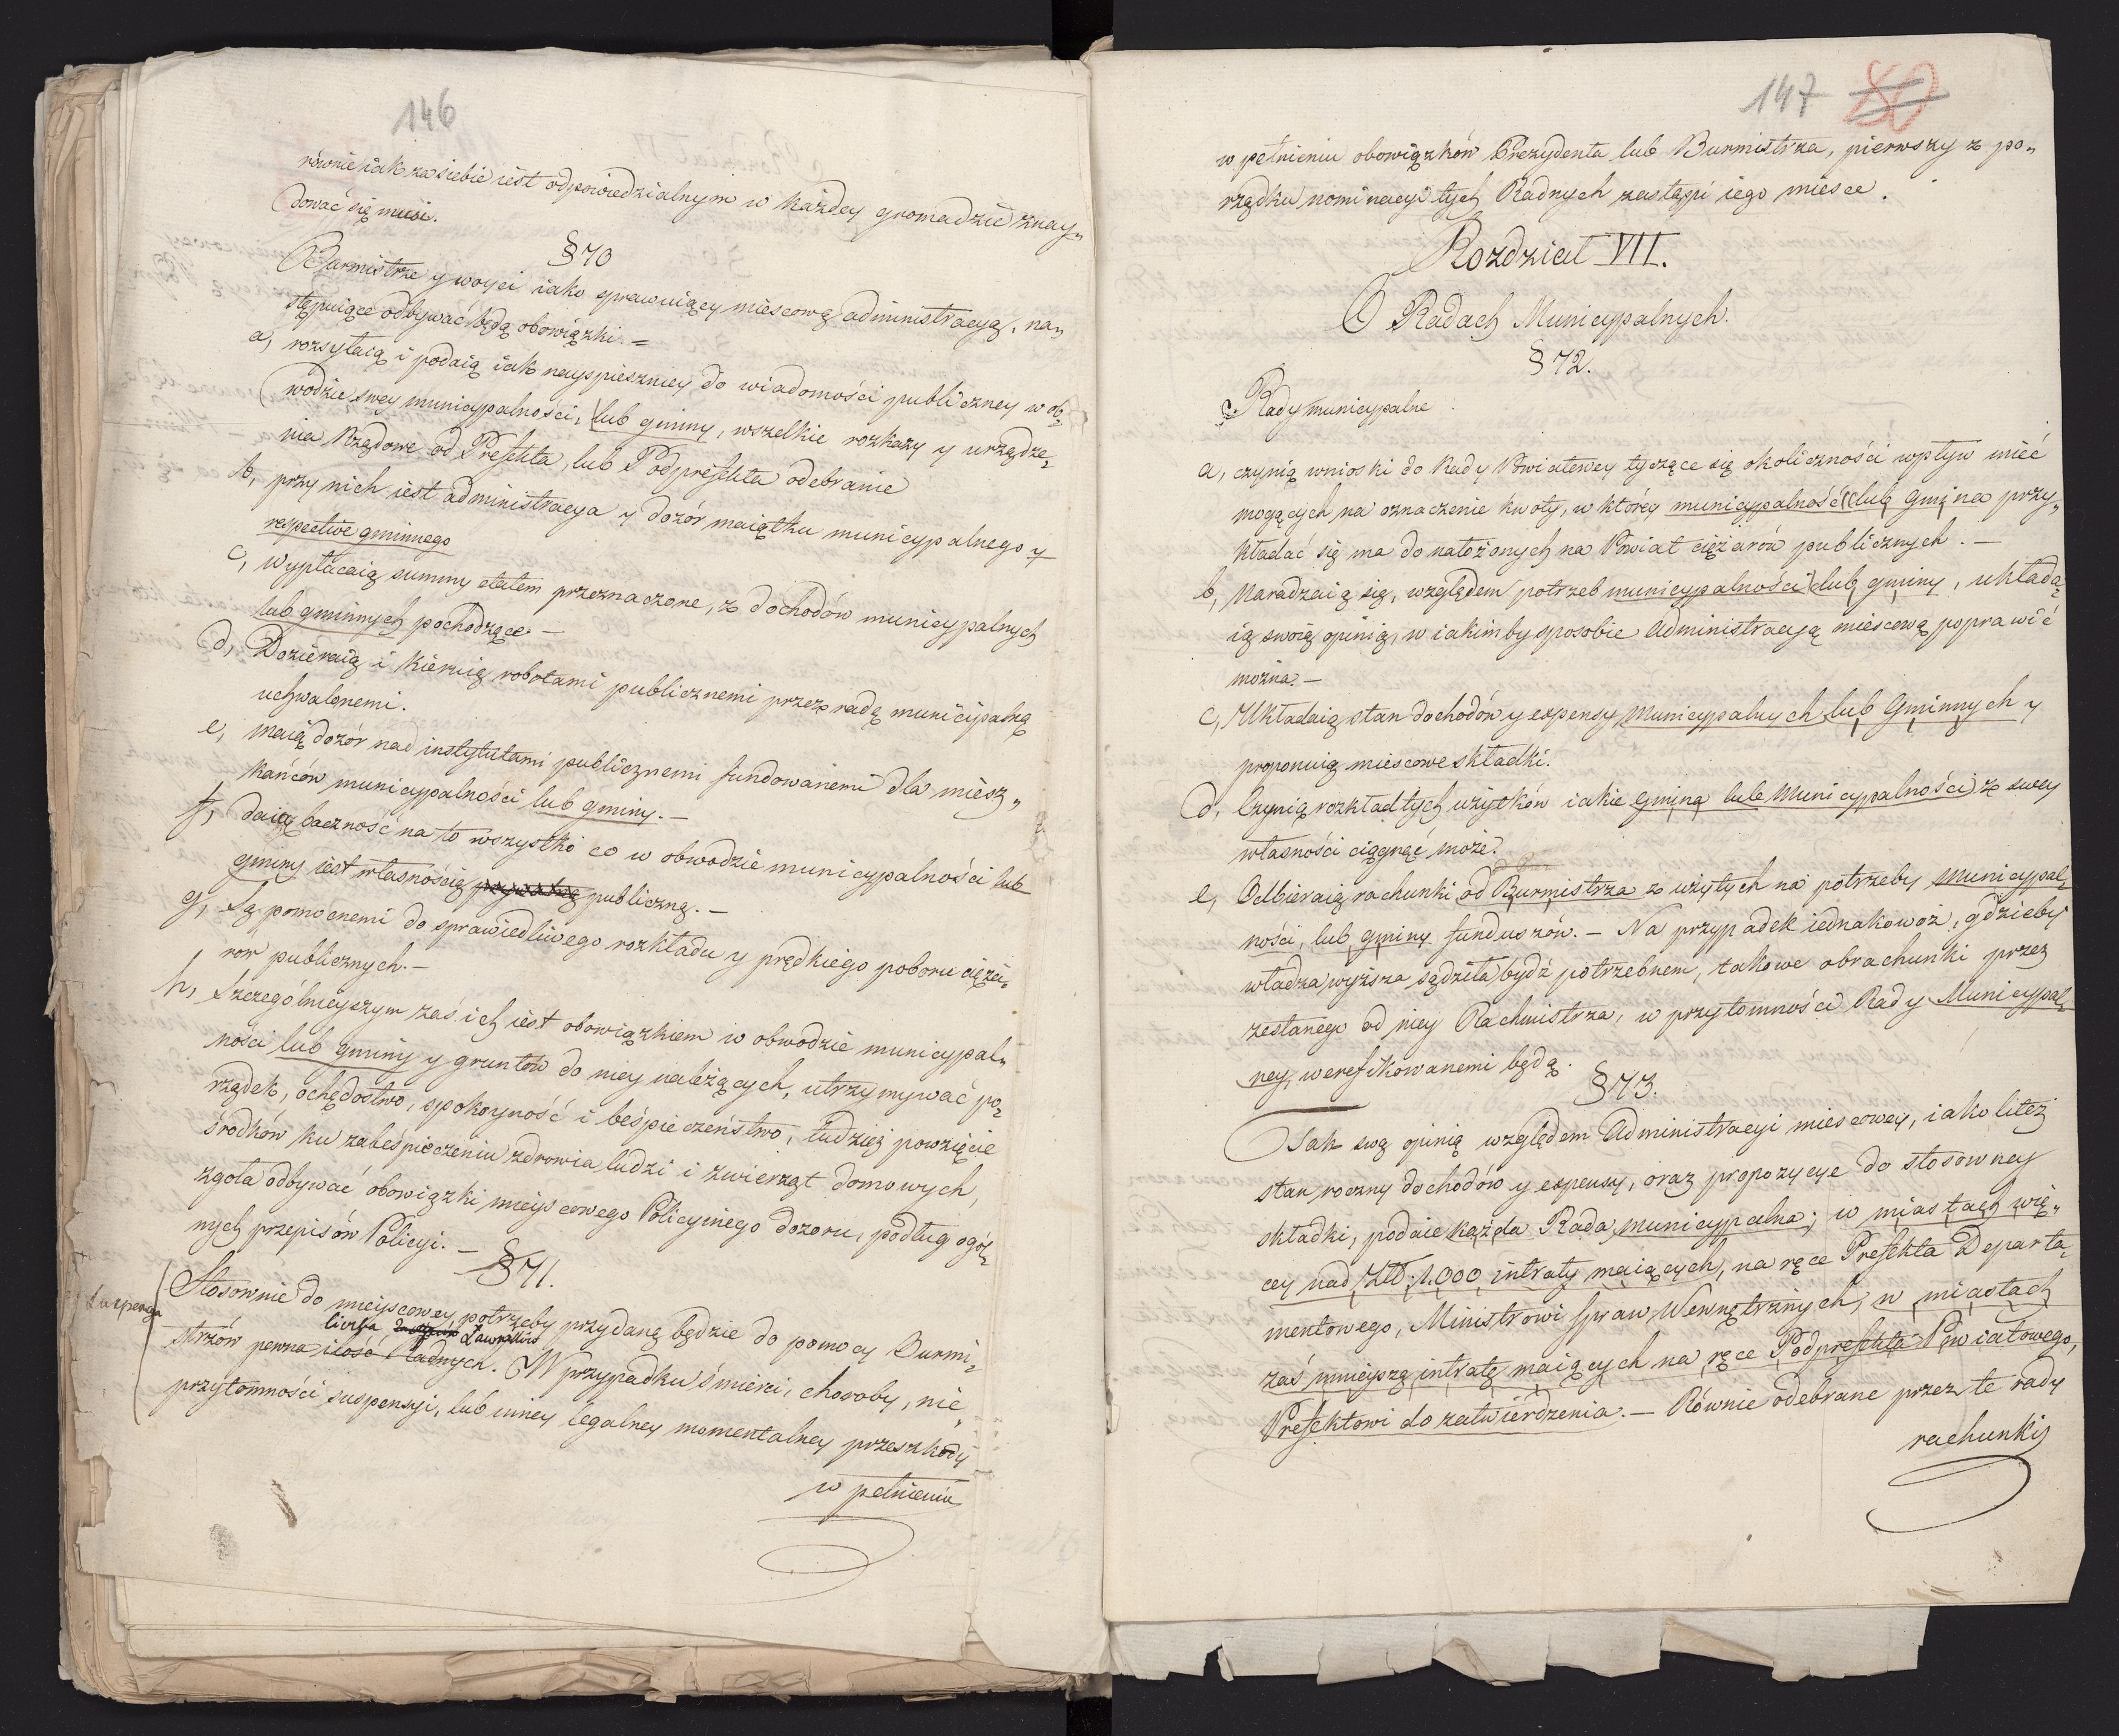 146
równie iak za siebie iest odpowiedzialnym w każdey gromadzie znay„
dować się musi.
§ 70
Burmistrze y woyci iako sprawuiący miescową administracyą, na„
stępuiące odbywać będą obowiązki. =
a, rozsyłaią i podaią iak nayspieszniey do wiadomości publiczney w ob„
wodzie swey municypalności, lub gminy, wszelkie rozkazy y urządze„
nia Rządowe od Prefekta, lub Podprefekta odebranie
b, przy nich iest administracya y dozór maiątku municypalnego y
respective gminnego
c, wypłacaią summy etatem przeznaczone, z dochodów municypalnych
lub gminnych pochodzące. —
d, Dozieraią i kieruią robotami publicznemi przez radę municipalną
uchwalonemi.
e, maią dozór nad instytutami publicznemi fundowanemi dla miesz„
kańców municypalności lub gminy. —
f, daią baczność na to wszystko co w obwodzie municypalności lub
gminy iest własnością publiczną. —
g, Są pomocnemi do sprawiedliwego rozkładu y prędkiego poboru cięża„
row publicznych. —
h, Szczególnieyszym zaś ich iest obowiązkiem w obwodzie municypal„
ności lub gminy y gruntów do niey należących, utrzymywać po„
rządek, ochędostwo, spokoyność i beśpieczeństwo, tudzież powzięcie
środków ku zabeśpieczeniu zdrowia ludzi i zwierząt domowych,
zgoła odbywać obowiązki mieyscowego Policyinego dozoru, podług ogól„
nych przepisów Policyi. —
§ 71.
Stosownie do mieyscowey potrzeby przydaną będzie do pomocy Burmi„
liczba Ławników
strzów pewna ilość Radnych. W przypadku śmierci, choroby, nie„
przytomności suspensyi, lub inney legalney momentalney przeszkody
w pełnieniu
147 80
w pełnieniu obowiązków Prezydenta lub Burmistrza, pierwszy z po„
rządku nominacyi tych Radnych zastąpi iego miesce.
Rozdział VII.
O Radach Municypalnych.
§ 72.
Rady municypalne
a, czynią wnioski do Rady Powiatowey tyczące się okoliczności wpływ mieć
mogących na oznaczenie kwoty, w którey municypalność lub gmina przy„
kładać się ma do nałożonych na Powiat ciężarów publicznych. —
b, Naradzaią się, względem potrzeb municypalności lub gminy, układa„
ią swoią opinią, w iakimby sposobie administracyą miescową poprawić
można. —
c, Układaią stan dochodów y expensy Municypalnych lub Gminnych y
proponuią miescowe składki.
d, Czynią rozkład tych użytków iakie gmina lub Municypalności z swey
własności ciągnąć może.
e, Odbieraią rachunki od Burmistrza z użytych na potrzeby municypal„
ności, lub gminy funduszów. — Na przypadek iednakowoż, gdzieby
władza wyższa sądziła bydź potrzebnem, takowe obrachunki przez
zesłanego od niey Rachmistrza, w przytomności Rady Municypal„
ney, werefikowanemi będą.
§ 73.
Jak swą opinią względem Administracyi miescowey, iako liteż
stan roczny dochodów y expensy, oraz propozycye do stosowney
składki, podaie każda Rada municypalna; w miastach wię„
cey nad Złł: 1.000 intraty maiących, na ręce Prefekta Departa„
mentowego, Ministrowi Spraw Wewnętrznych, w miastach
zaś mnieyszą intratę maiących na ręce Podprefekta Powiatowego,
Prefektowi do zatwierdzenia. — Równie odebrane przez te rady
rachunki